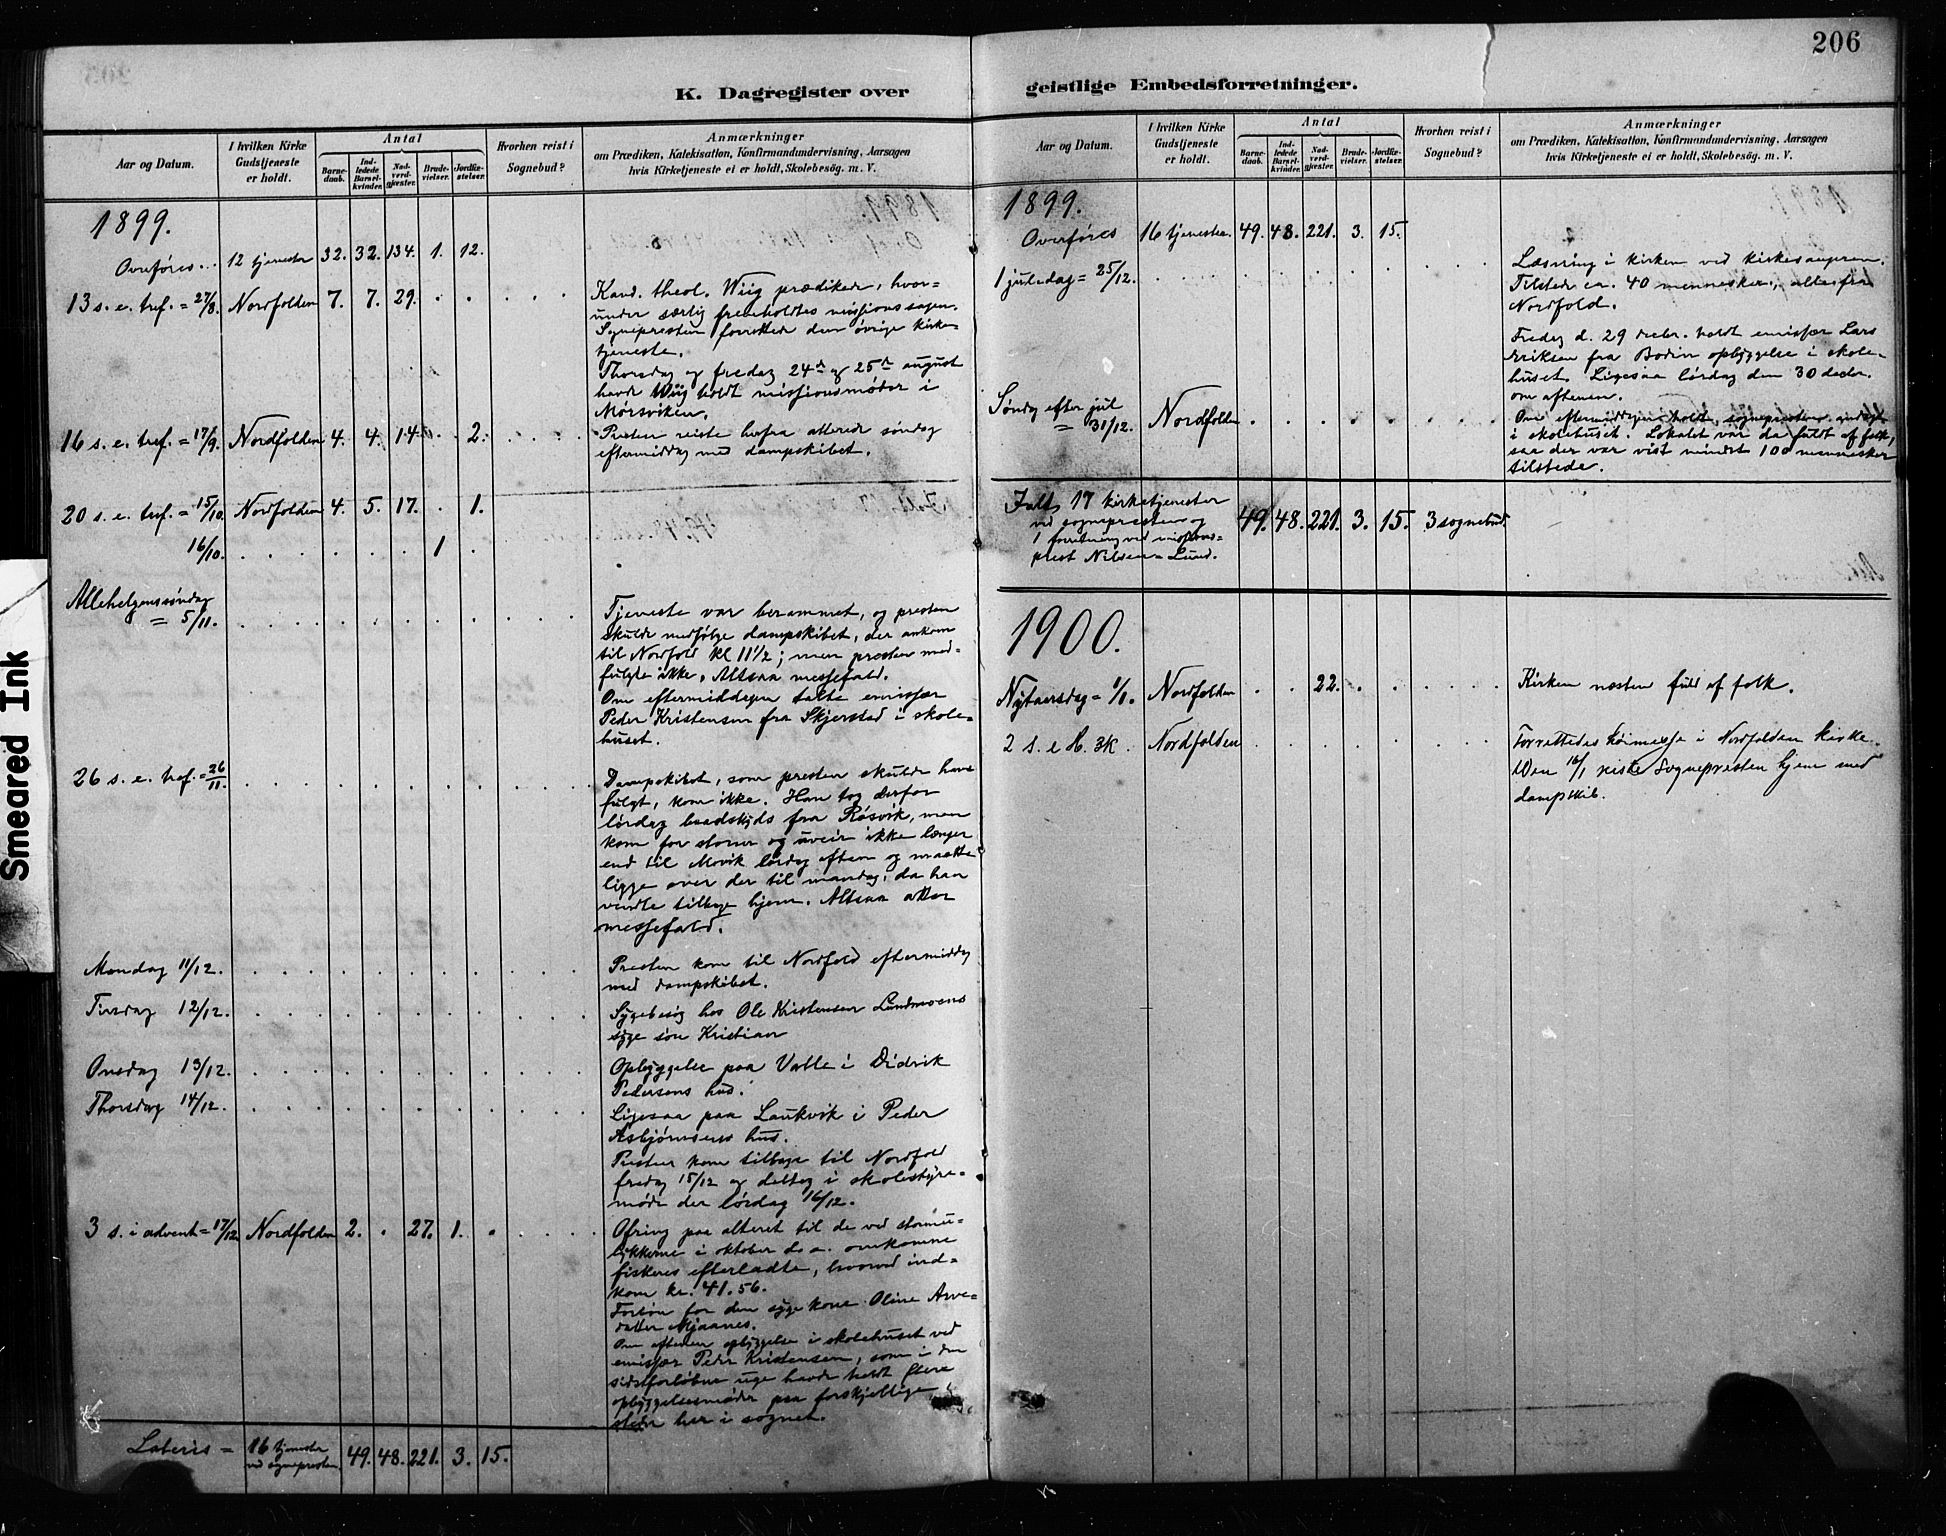 206
K. Dagregister over
geistlige Embedsforretninger.
Aar og Datum.
I hvilken Kirke
Gudstjeneste
er holdt.
Antal
Barne-
daab.
Ind-
ledede
Barsel-
kvinder.
Nad-
verd-
gjester.
Brude-
vielser.
Jordfæ-
stelser.
Hvorhen reist i
Sognebud?
Anmærkninger
om Prædiken, Katekisation, Konfirmandundervisning, Aarsagen
hvis Kirketjeneste ei er holdt, Skolebesøg. m. V.
1899.
Overføres... 12 tjenester 32. 32. 134. 1. 12.
13 s. e. tref. = 27/8. Nordfolden 7. 7. 29.
Kand. theol. Wiig prædikede, hvor-
under særlig fremholdtes missionssagen.
Sognepresten forrettede den øvrige kirke-
tjeneste.
Thorsdag og fredag 24de og 25de august
havde Wiig holdt missionsmøder i
Mørsviken.
16 s. e. tref. = 17/9. Nordfolden 4. 4. 14. 2.
Presten reiste herfra allerede søndag
eftermiddag med dampskibet.
20 s. e. tref. = 15/10. Nordfolden 4. 5. 17. 1.
16/10. 1
Allehelgenssøndag
= 5/11.
Tjeneste var berammet, og presten
skulde medfølge dampskibet, der ankom
til Nordfold kl 11 1/2; men presten med-
fulgte ikke. Altsaa messefald.
Om eftermiddagen talte emissær
Peder Kristensen fra Skjerstad i skole-
huset.
26 s. e. tref. = 26/11.
Dampskibet, som presten skulde have
fulgt, kom ikke. Han tog derfor
lørdag baadskyds fra Røsvik, men
kom for storm og uveir ikke længer
end til Movik lørdag aften og maatte
ligge over der til mandag, da han
vendte tilbage hjem. Altsaa atter
messefald.
Mandag 11/12.
Presten kom til Nordfold eftermiddag
med dampskibet.
Tirsdag 12/12.
Sygebesøg hos Ole Kristensen Lundmoens
syge søn Kristian
Onsdag 13/12.
Opbyggelse paa Valle i Didrik
Pedersens hus.
Thorsdag 14/12.
Ligesaa paa Laukvik i Peder
Asbjørnsens hus.
Presten kom tilbage til Nordfold
fredag 15/12 og deltog i skolestyre-
møde der lørdag 16/12.
3 s. i advent = 17/12 Nordfolden 2. 27. 1.
Ofring paa alteret til de ved stormu-
lykkerne i oktober d. a. omkomne
fiskeres efterladte, hvorved ind-
kom kr. 41.56.
Forbøn for den syge kone Oline Arve-
datter Mjaanes.
Om aftenen opbyggelse i skolehuset ved
emissær Peder Kristensen, som i den
sidstforløbne uge havde holdt flere
opbyggelsesmøder paa forskjellige
steder her i sognet.
Lateris = 16 tjenester
ved sognepresten. 49. 48. 221. 3. 15.
Aar og Datum.
I hvilken Kirke
Gudstjeneste
er holdt.
Antal
Barne-
daab.
Ind-
ledede
Barsel-
kvinder.
Nad-
verd-
gjester.
Brude-
vielser.
Jordfæ-
stelser.
Hvorhen reist i
Sognebud?
Anmærkninger
om Prædiken, Katekisation, Konfirmandundervisning, Aarsagen
hvis Kirketjeneste ei er holdt, Skolebesøg. m. V.
1899.
Overføres 16 tjenester. 49. 48. 221. 3. 15.
1 juledag = 25/12.
Læsning i kirken ved kirkesangeren.
Tilstede ca. 40 mennesker, alle fra
Nordfold.
Fredag d. 29 decbr. holdt emissær Lars
Eriksen fra Bodin opbyggelse i skole-
huset. Ligesaa lørdag den 30 decbr.
om aftenen.
Søndag efter jul
= 31/12. Nordfolden
Om eftermiddagen holdt sognepresten andagt
i skolehuset. Lokalet var da fuldt af folk,
saa der var vist mindst 100 mennesker
tilstede.
Ialt 17 kirketjenester
ved sognepresten og
1 forretning ved missions-
prest Nilsen-Lund. 49. 48. 221. 3. 15. 3 sognebud.
1900.
Nytaarsdag = 1/1. Nordfolden 22.
Kirken næsten fuld af folk.
2 s. e H. 3k. Nordfolden
Forrettedes høimesse i Nordfolden kirke.
Den 16/1 reiste Sognepresten hjem med
dampskib.
Smeared Ink